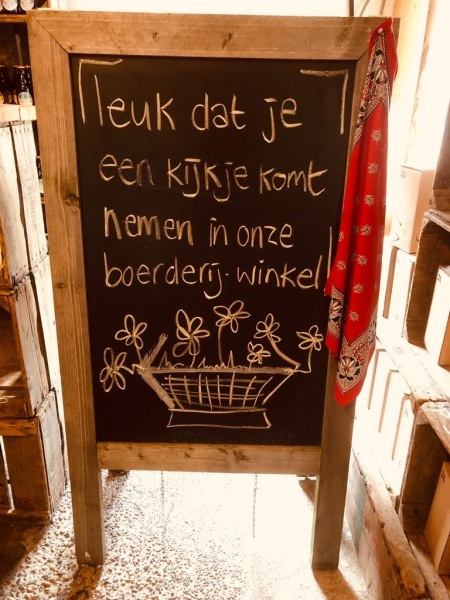 leuk dat je
een kijkje komt
nemen in onze
boerderij-winkel